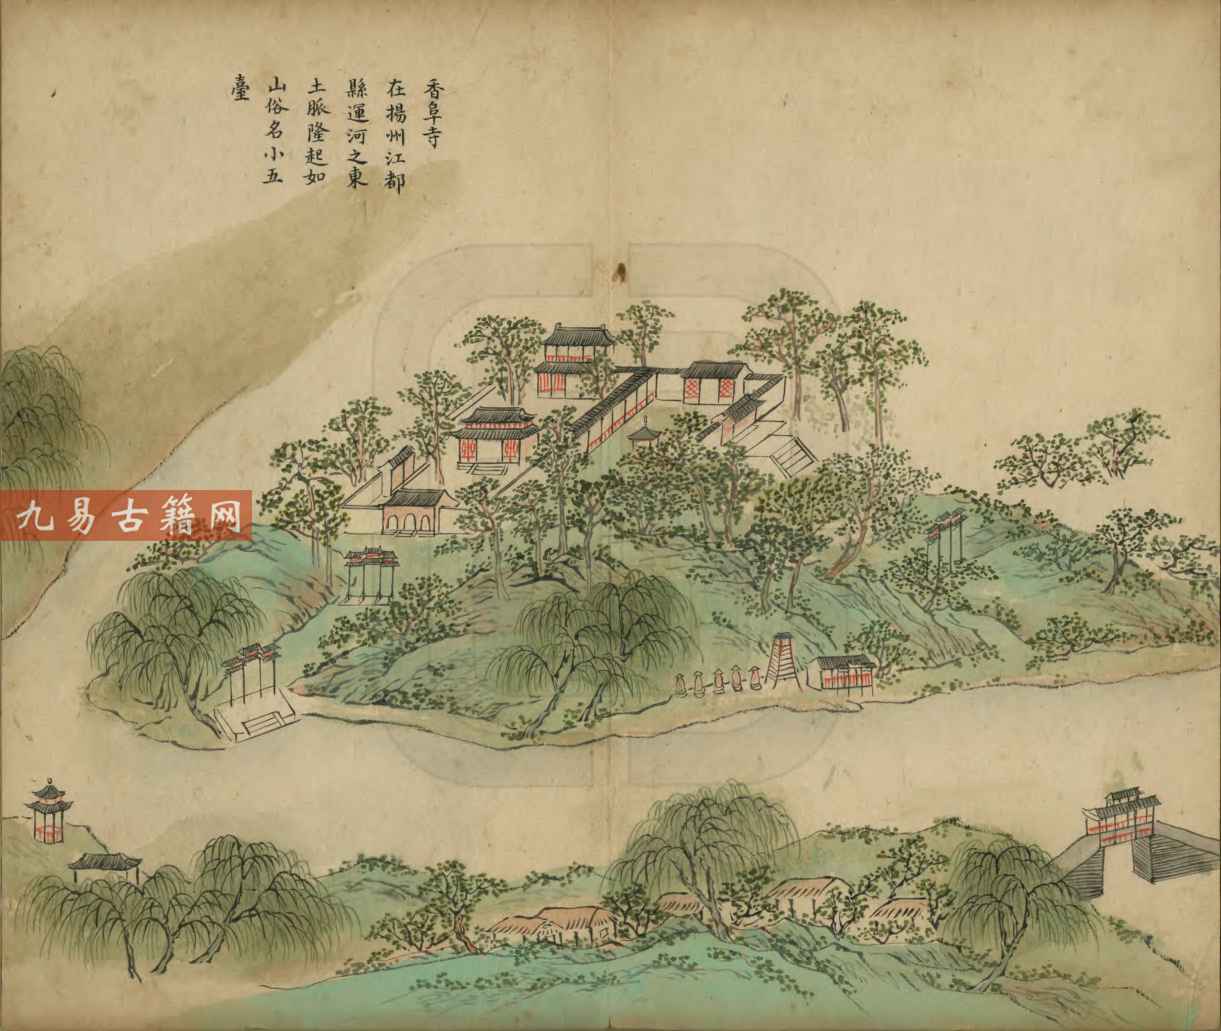 香阜寺
在揚州江都
縣運河之東
土脈隆起如
山俗名小五
臺
九易古籍网